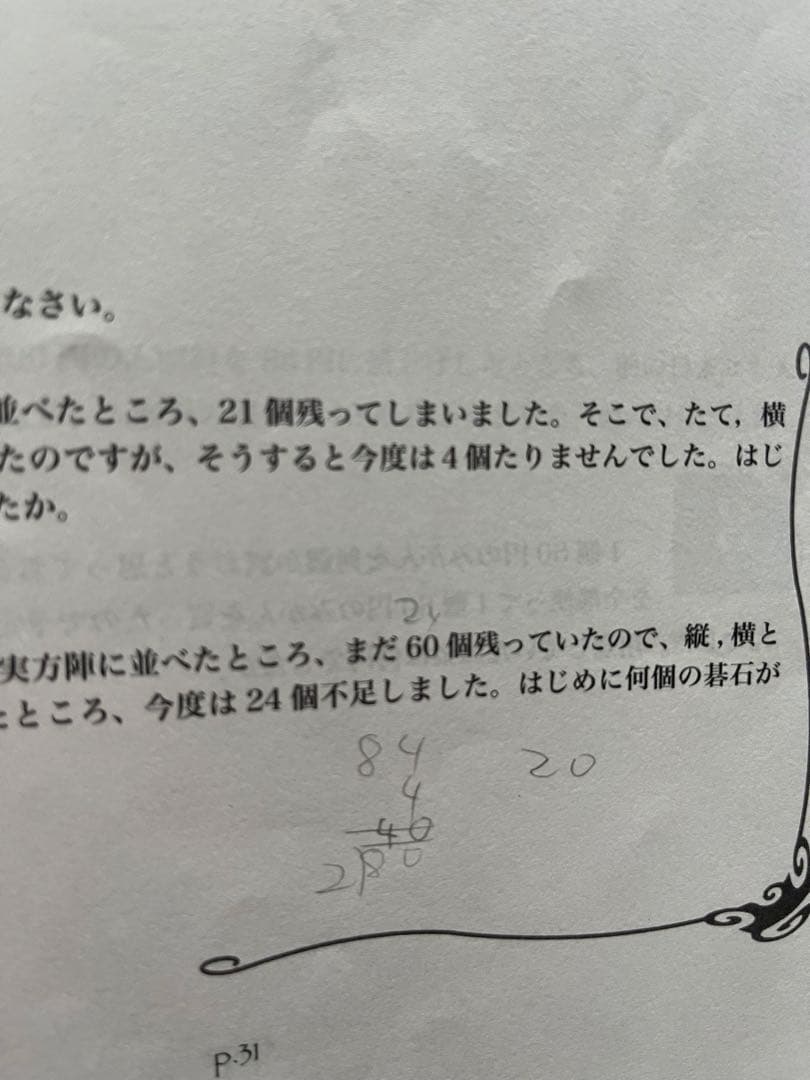 なさい。
並べたところ、21個残ってしまいました。そこで、たて，横
たのですが、そうすると今度は4個たりませんでした。はじ
たか。
24
実方陣に並べたところ、まだ60個残っていたので、縦，横と
たところ、今度は24個不足しました。はじめに何個の碁石が
84 20
4
40
2)80
P.31